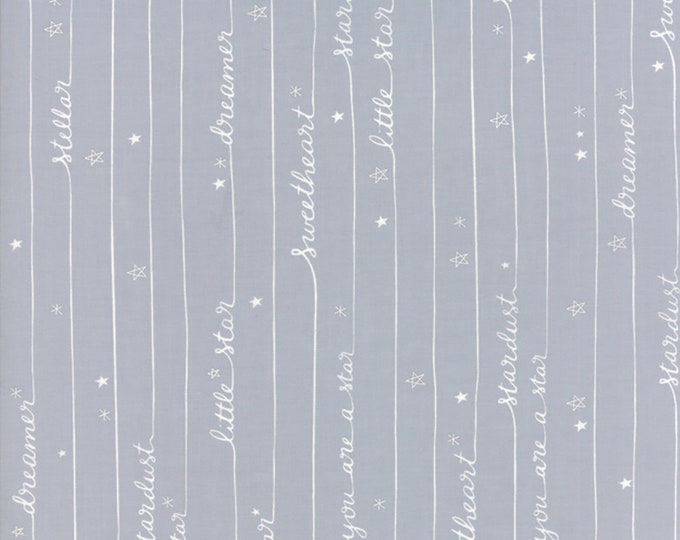 dreamer
stellar
stardust
tar
little star
dreamer
star
sweetheart
you are a star
star
little star
theart
stardust
you are a star
dreamer
stardust
swe